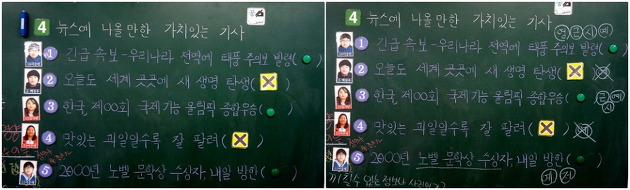 4 뉴스에 나올 만한 가치있는 기사
1 긴급 속보-우리나라 전역에 태풍 주의보 발령( )
2 오늘도 세계 곳곳에 새 생명 탄생( )
3 한국 제00회 국제기능 올림픽 종합우승( )
4 맛있는 과일일수록 잘 팔려( )
5 2000년 노벨 문학상 수상자 내일 방한( )
4 뉴스에 나올 만한 가치있는 기사
1 긴급 속보-우리나라 전역에 태풍 주의보 발령( )
2 오늘도 세계 곳곳에 새 생명 탄생( )
3 한국 제00회 국제기능 올림픽 종합우승( )
4 맛있는 과일일수록 잘 팔려( )
5 2000년 노벨 문학상 수상자 내일 방한( )